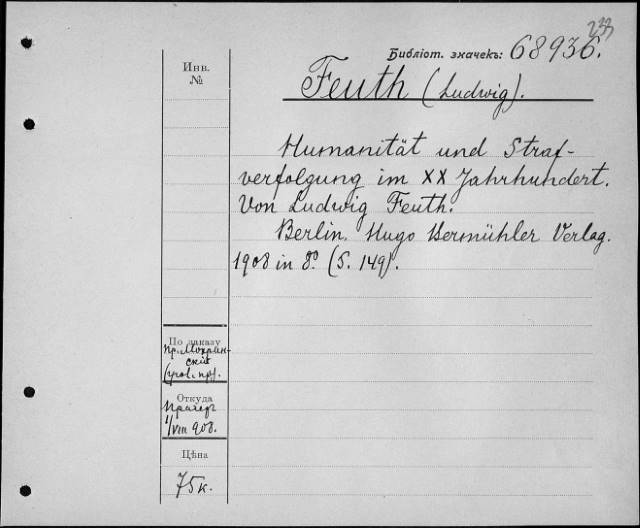 233
Библіот. значекъ: 68936.
Инв.
№
Feuth (Ludwig).
Humanität und Straf-
verfolgung im XX Jahrhundert.
Von Ludwig Feuth.
Berlin. Hugo Bermühler Verlag.
1908 in 8º. (S. 149).
По заказу
пр. Мокрин-
скій
(угол. пр).
Откуда
1/VIII 908.
Цѣна
75к.